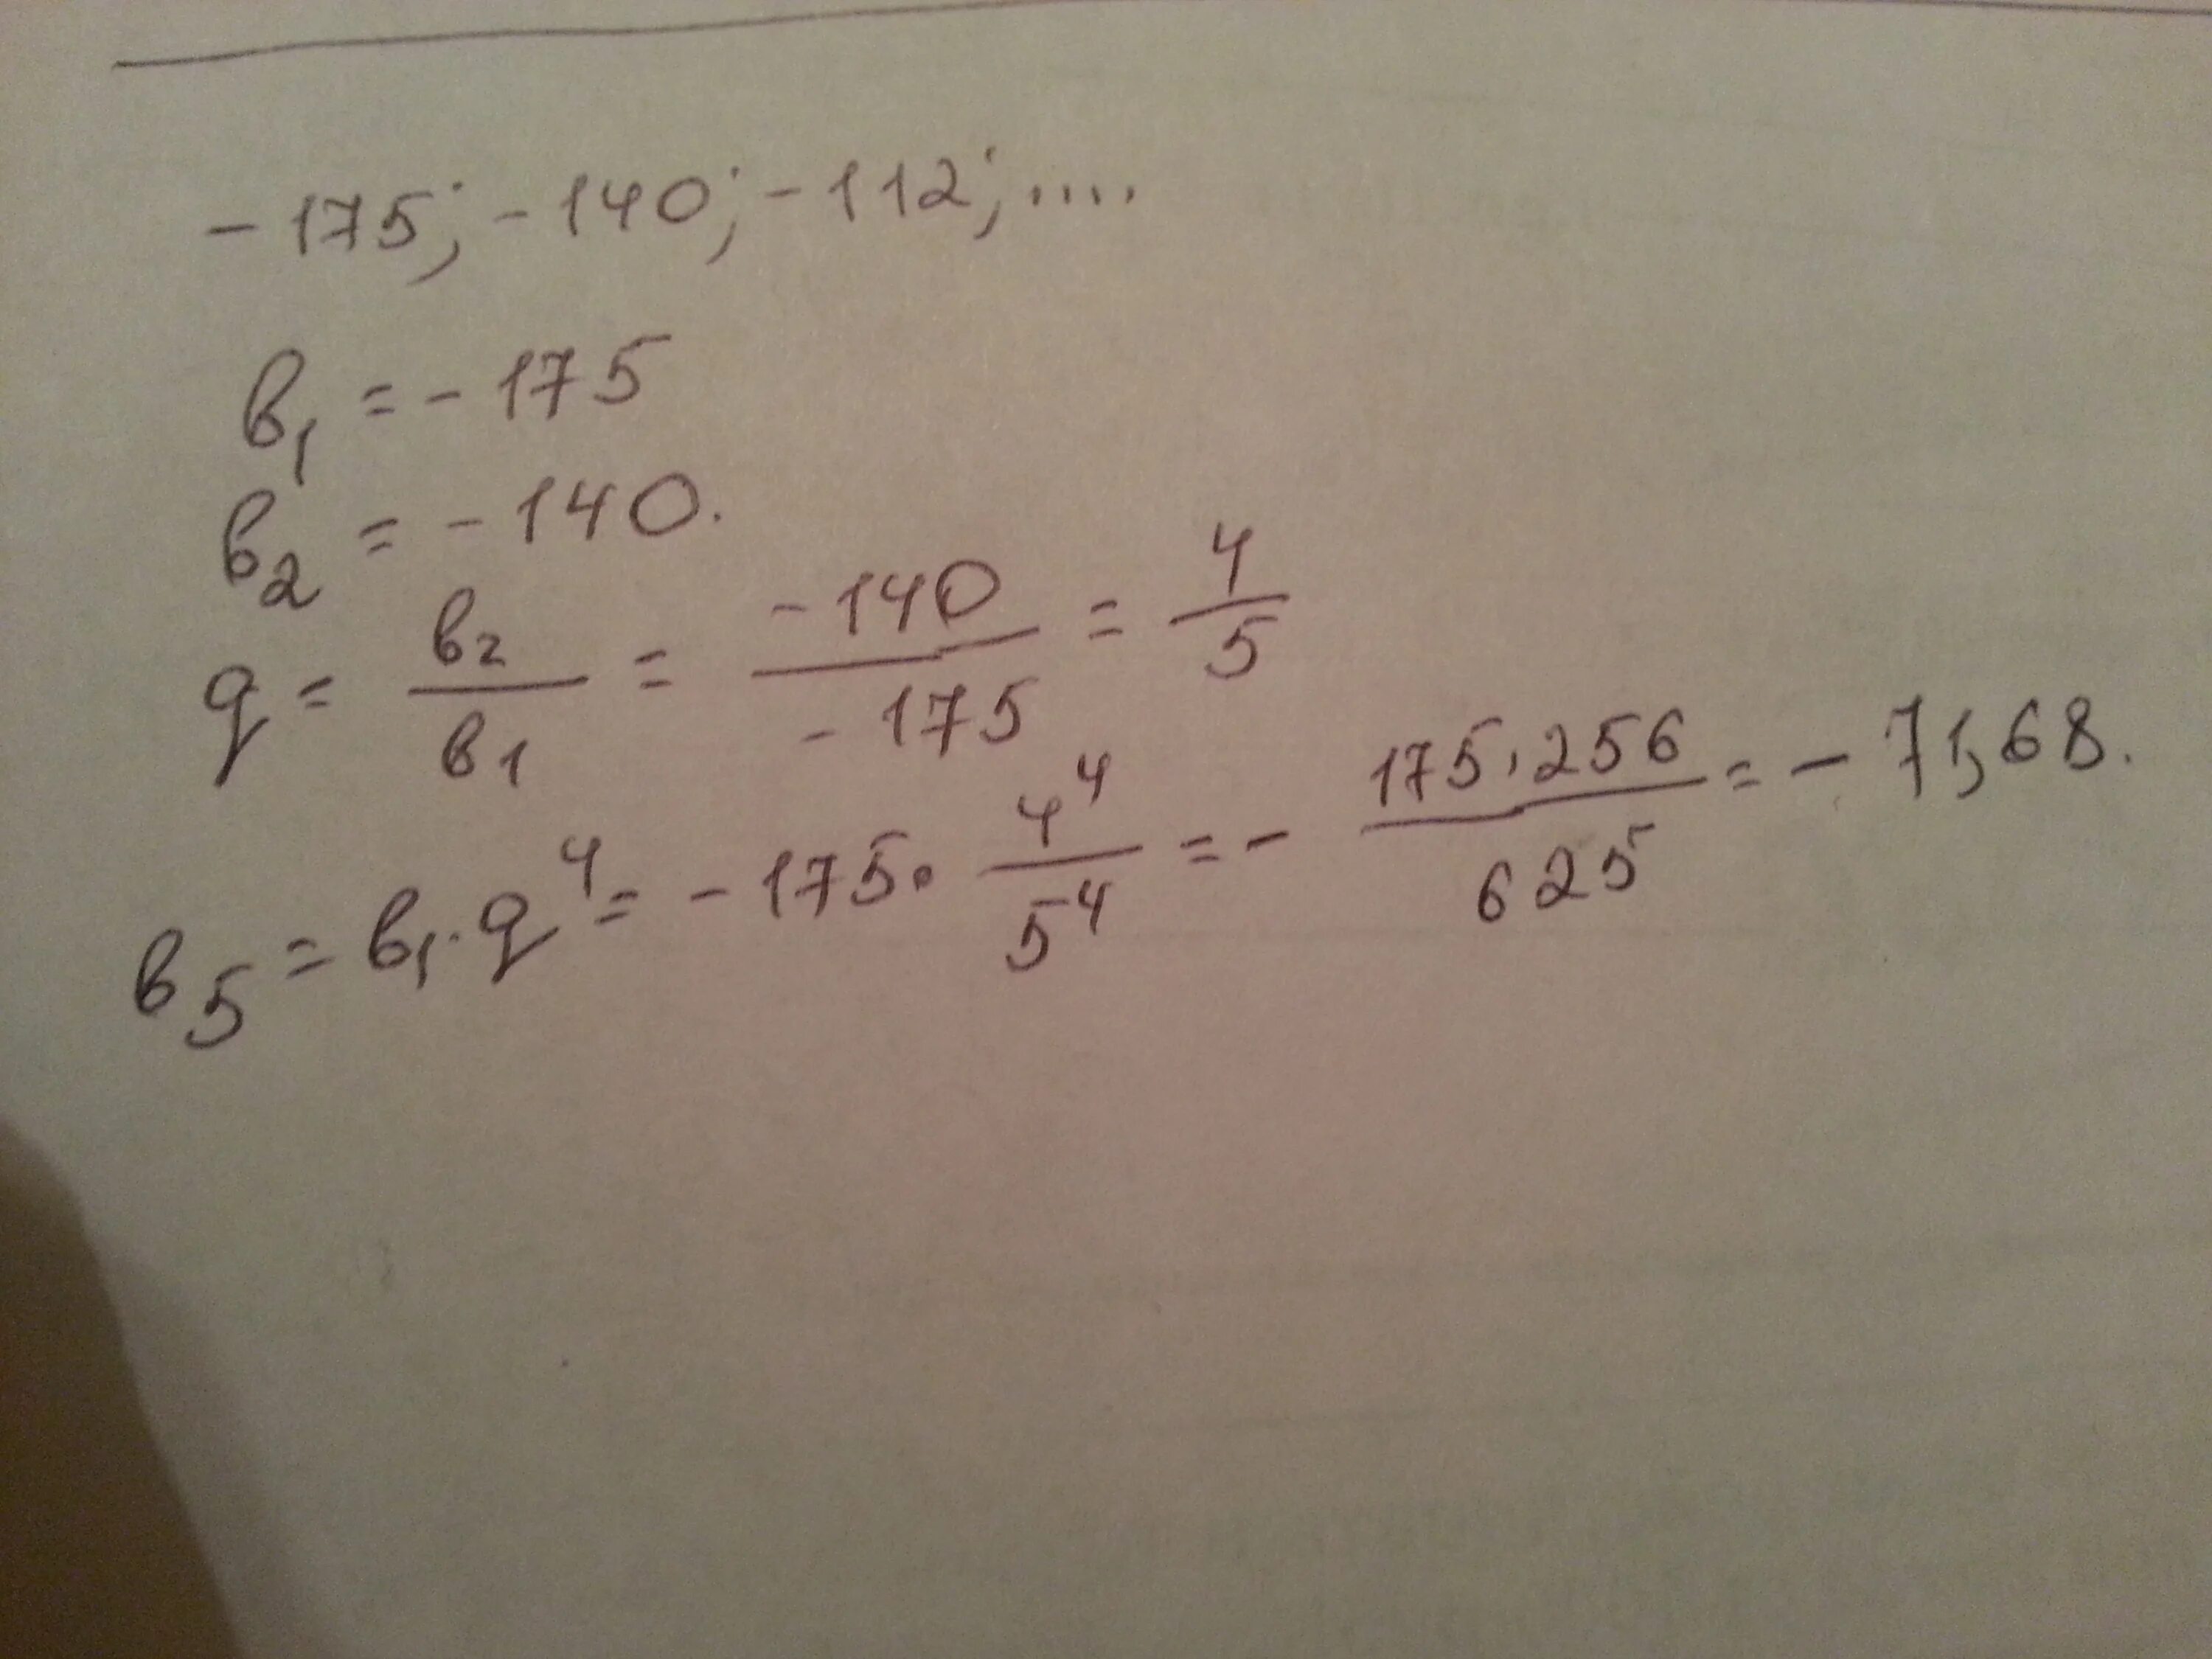 -175; -140; -112; ....
в₁ = -175
в₂ = -140.
q = в₂/в₁ = -140/-175 = 4/5
в₅ = в₁·q⁴ = -175·4⁴/5⁴ = - 175·256/625 = -71,68.